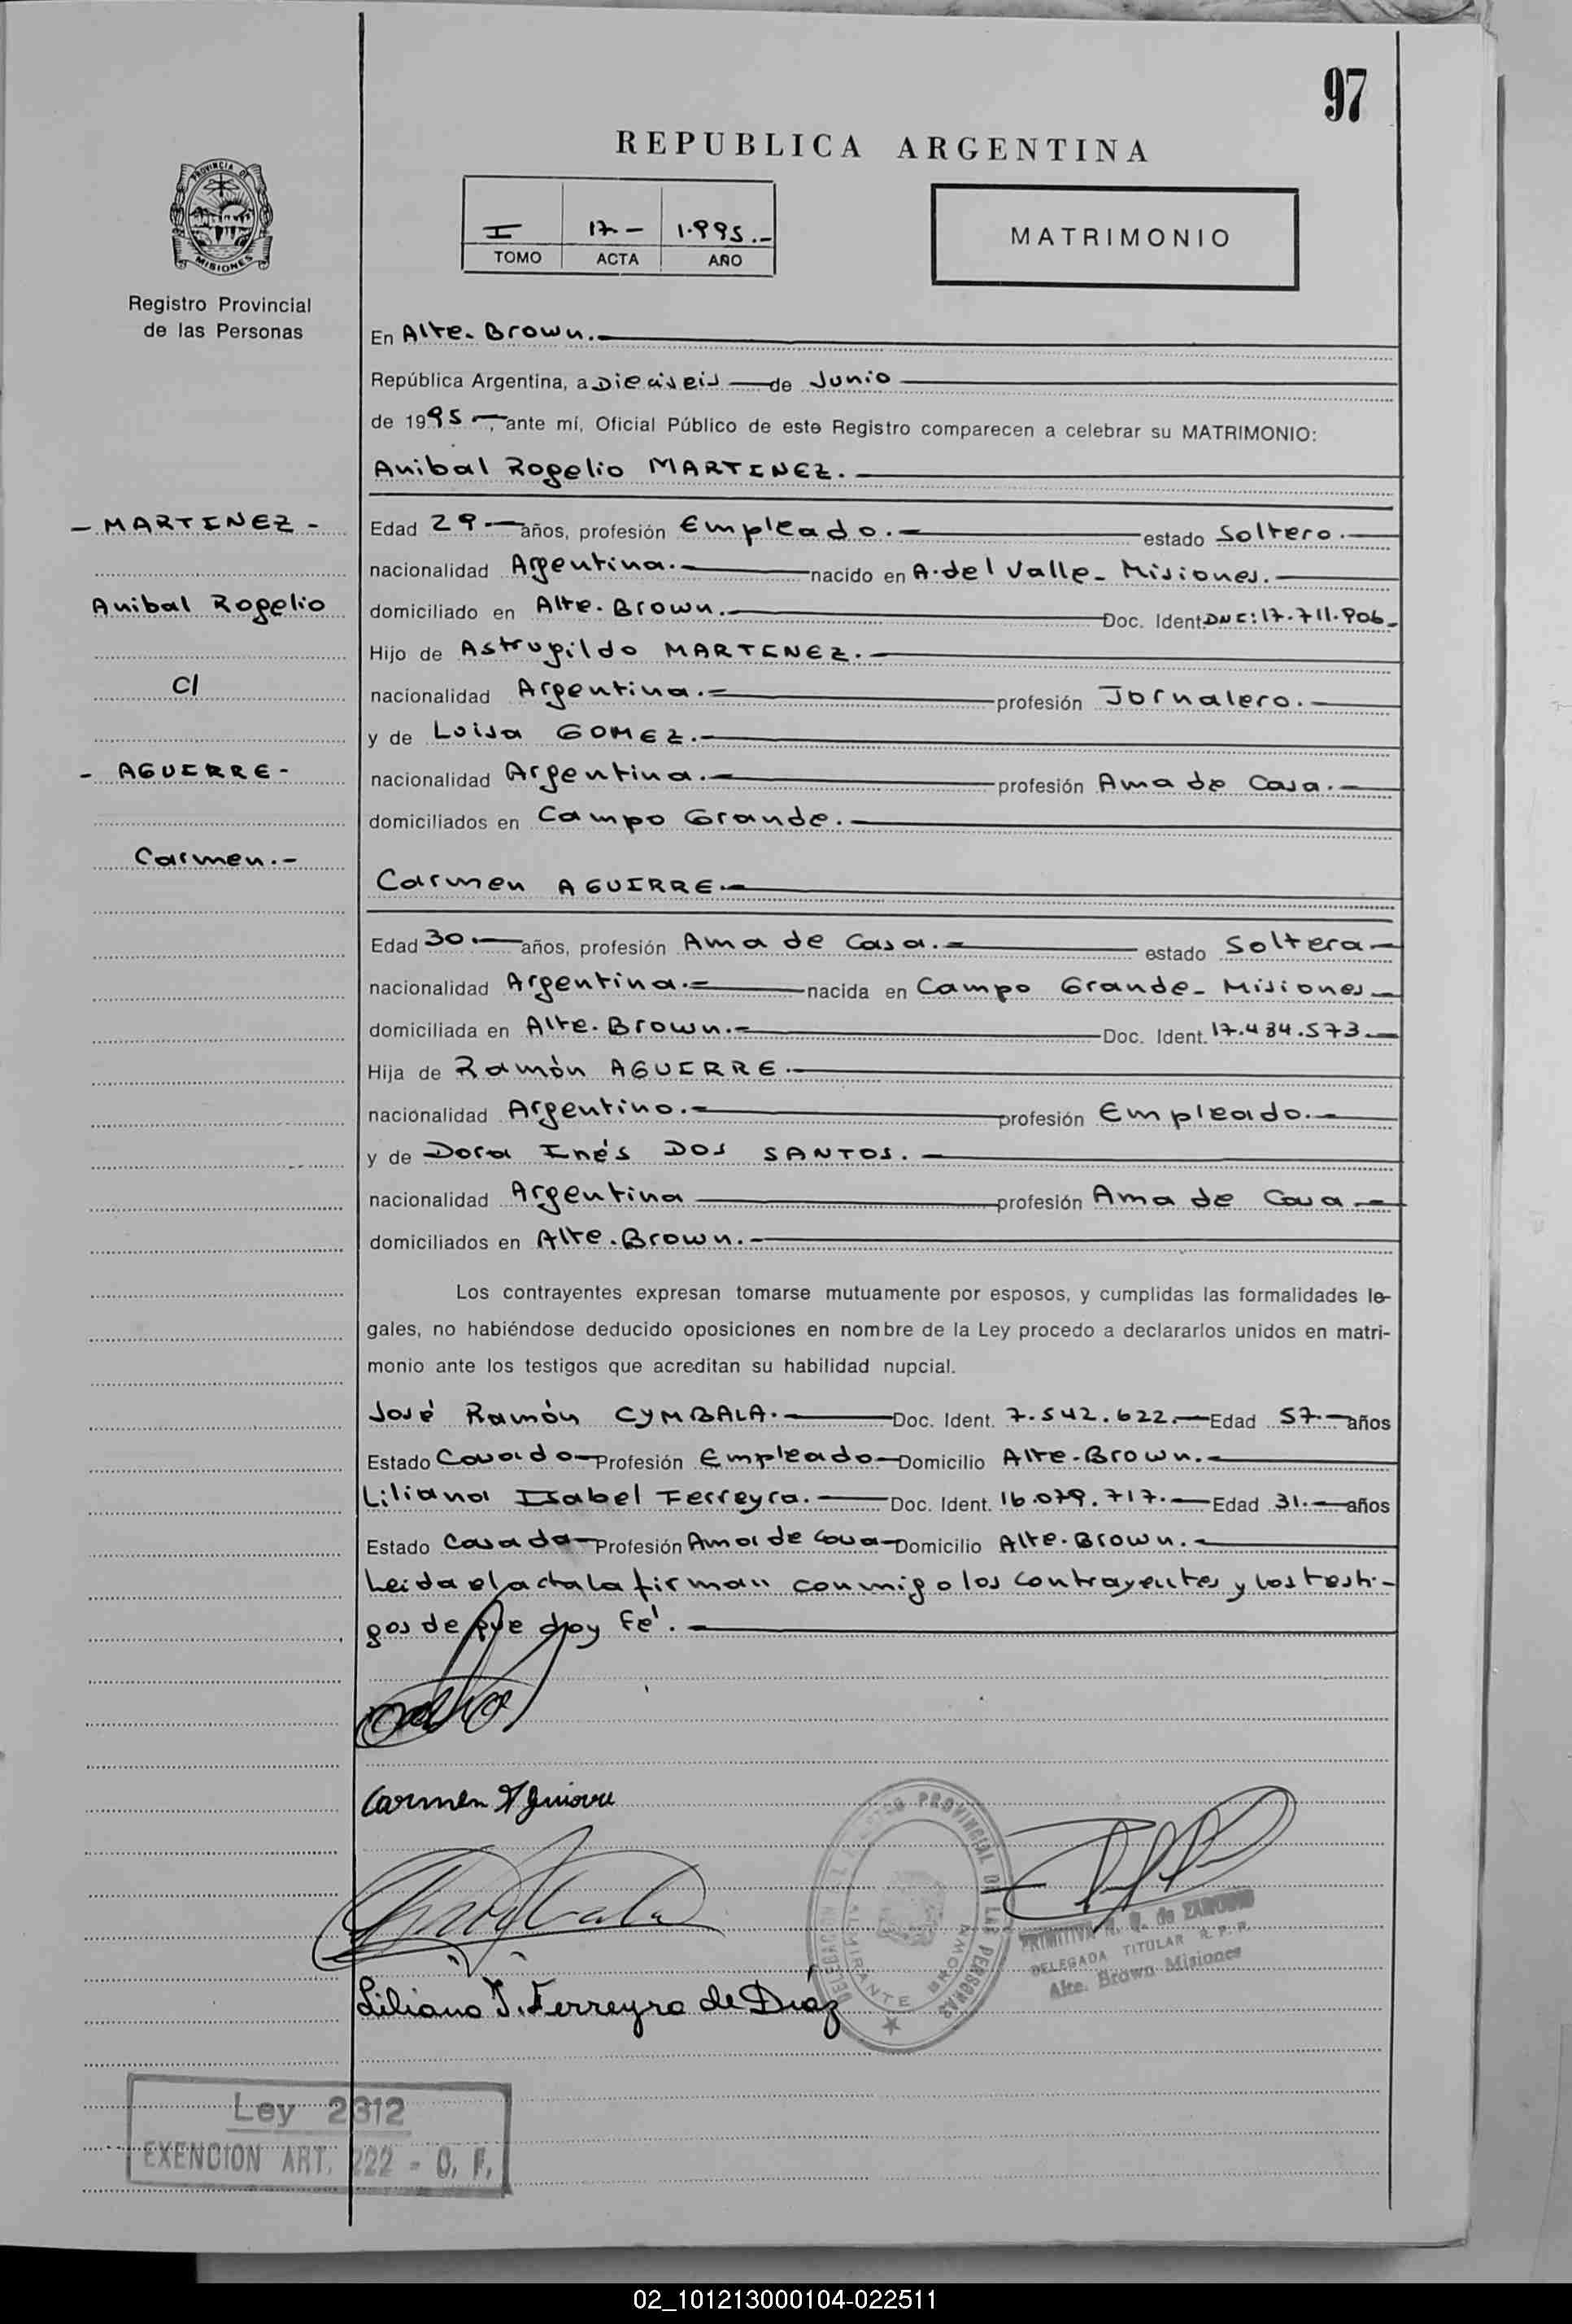 97
REPUBLICA ARGENTINA
PROVINCIA DE
MISIONES
Registro Provincial
de las Personas
I 17- 1.995.-
TOMO ACTA AÑO
MATRIMONIO
En Alte. Brown.-
República Argentina, a Dieciseis de Junio
de 1995 -, ante mí, Oficial Público de este Registro comparecen a celebrar su MATRIMONIO:
Anibal Rogelio MARTINEZ.-
- MARTINEZ -
Edad 29.- años, profesión Empleado.- estado Soltero.-
nacionalidad Argentina.- nacido en A. del Valle - Misiones.-
Anibal Rogelio
domiciliado en Alte. Brown.- Doc. Ident. DNI: 17.711.906.
Hijo de Astrugildo MARTINEZ.-
C/
nacionalidad Argentina.- profesión Jornalero.-
y de Luisa GOMEZ.-
- AGUIRRE -
nacionalidad Argentina.- profesión Ama de Casa.-
domiciliados en Campo Grande.-
Carmen.-
Carmen AGUIRRE.-
Edad 30.- años, profesión Ama de Casa.- estado Soltera-
nacionalidad Argentina.- nacida en Campo Grande - Misiones-
domiciliada en Alte. Brown.- Doc. Ident. 17.484.573.-
Hija de Ramòn AGUIRRE.-
nacionalidad Argentino.- profesión Empleado.-
y de Dora Inés DOS SANTOS.-
nacionalidad Argentina profesión Ama de Casa-
domiciliados en Alte. Brown.-
Los contrayentes expresan tomarse mutuamente por esposos, y cumplidas las formalidades le-
gales, no habiéndose deducido oposiciones en nombre de la Ley procedo a declararlos unidos en matri-
monio ante los testigos que acreditan su habilidad nupcial.
José Ramón CYMBALA.- Doc. Ident. 7.542.622.- Edad 57.- años
Estado Casado- Profesión Empleado- Domicilio Alte. Brown.-
Liliana Isabel Ferreyra.- Doc. Ident. 16.079.717.- Edad 31.- años
Estado Casada- Profesión Ama de Casa- Domicilio Alte. Brown.-
Leida el acta la firman conmigo los contrayentes y los testi-
gos de que doy fé.-
Carmen Aguirre
DELEGACION REGISTRO PROVINCIAL DE LAS PERSONAS
ALMIRANTE BROWN
PRIMITIVA N. Q. de ZAMUDIO
DELEGADA TITULAR R. P. P.
Alte. Brown Misiones
Liliana I. Ferreyra de Díaz
Ley 2312
EXENCION ART. 222 - C. F.
02_101213000104-022511